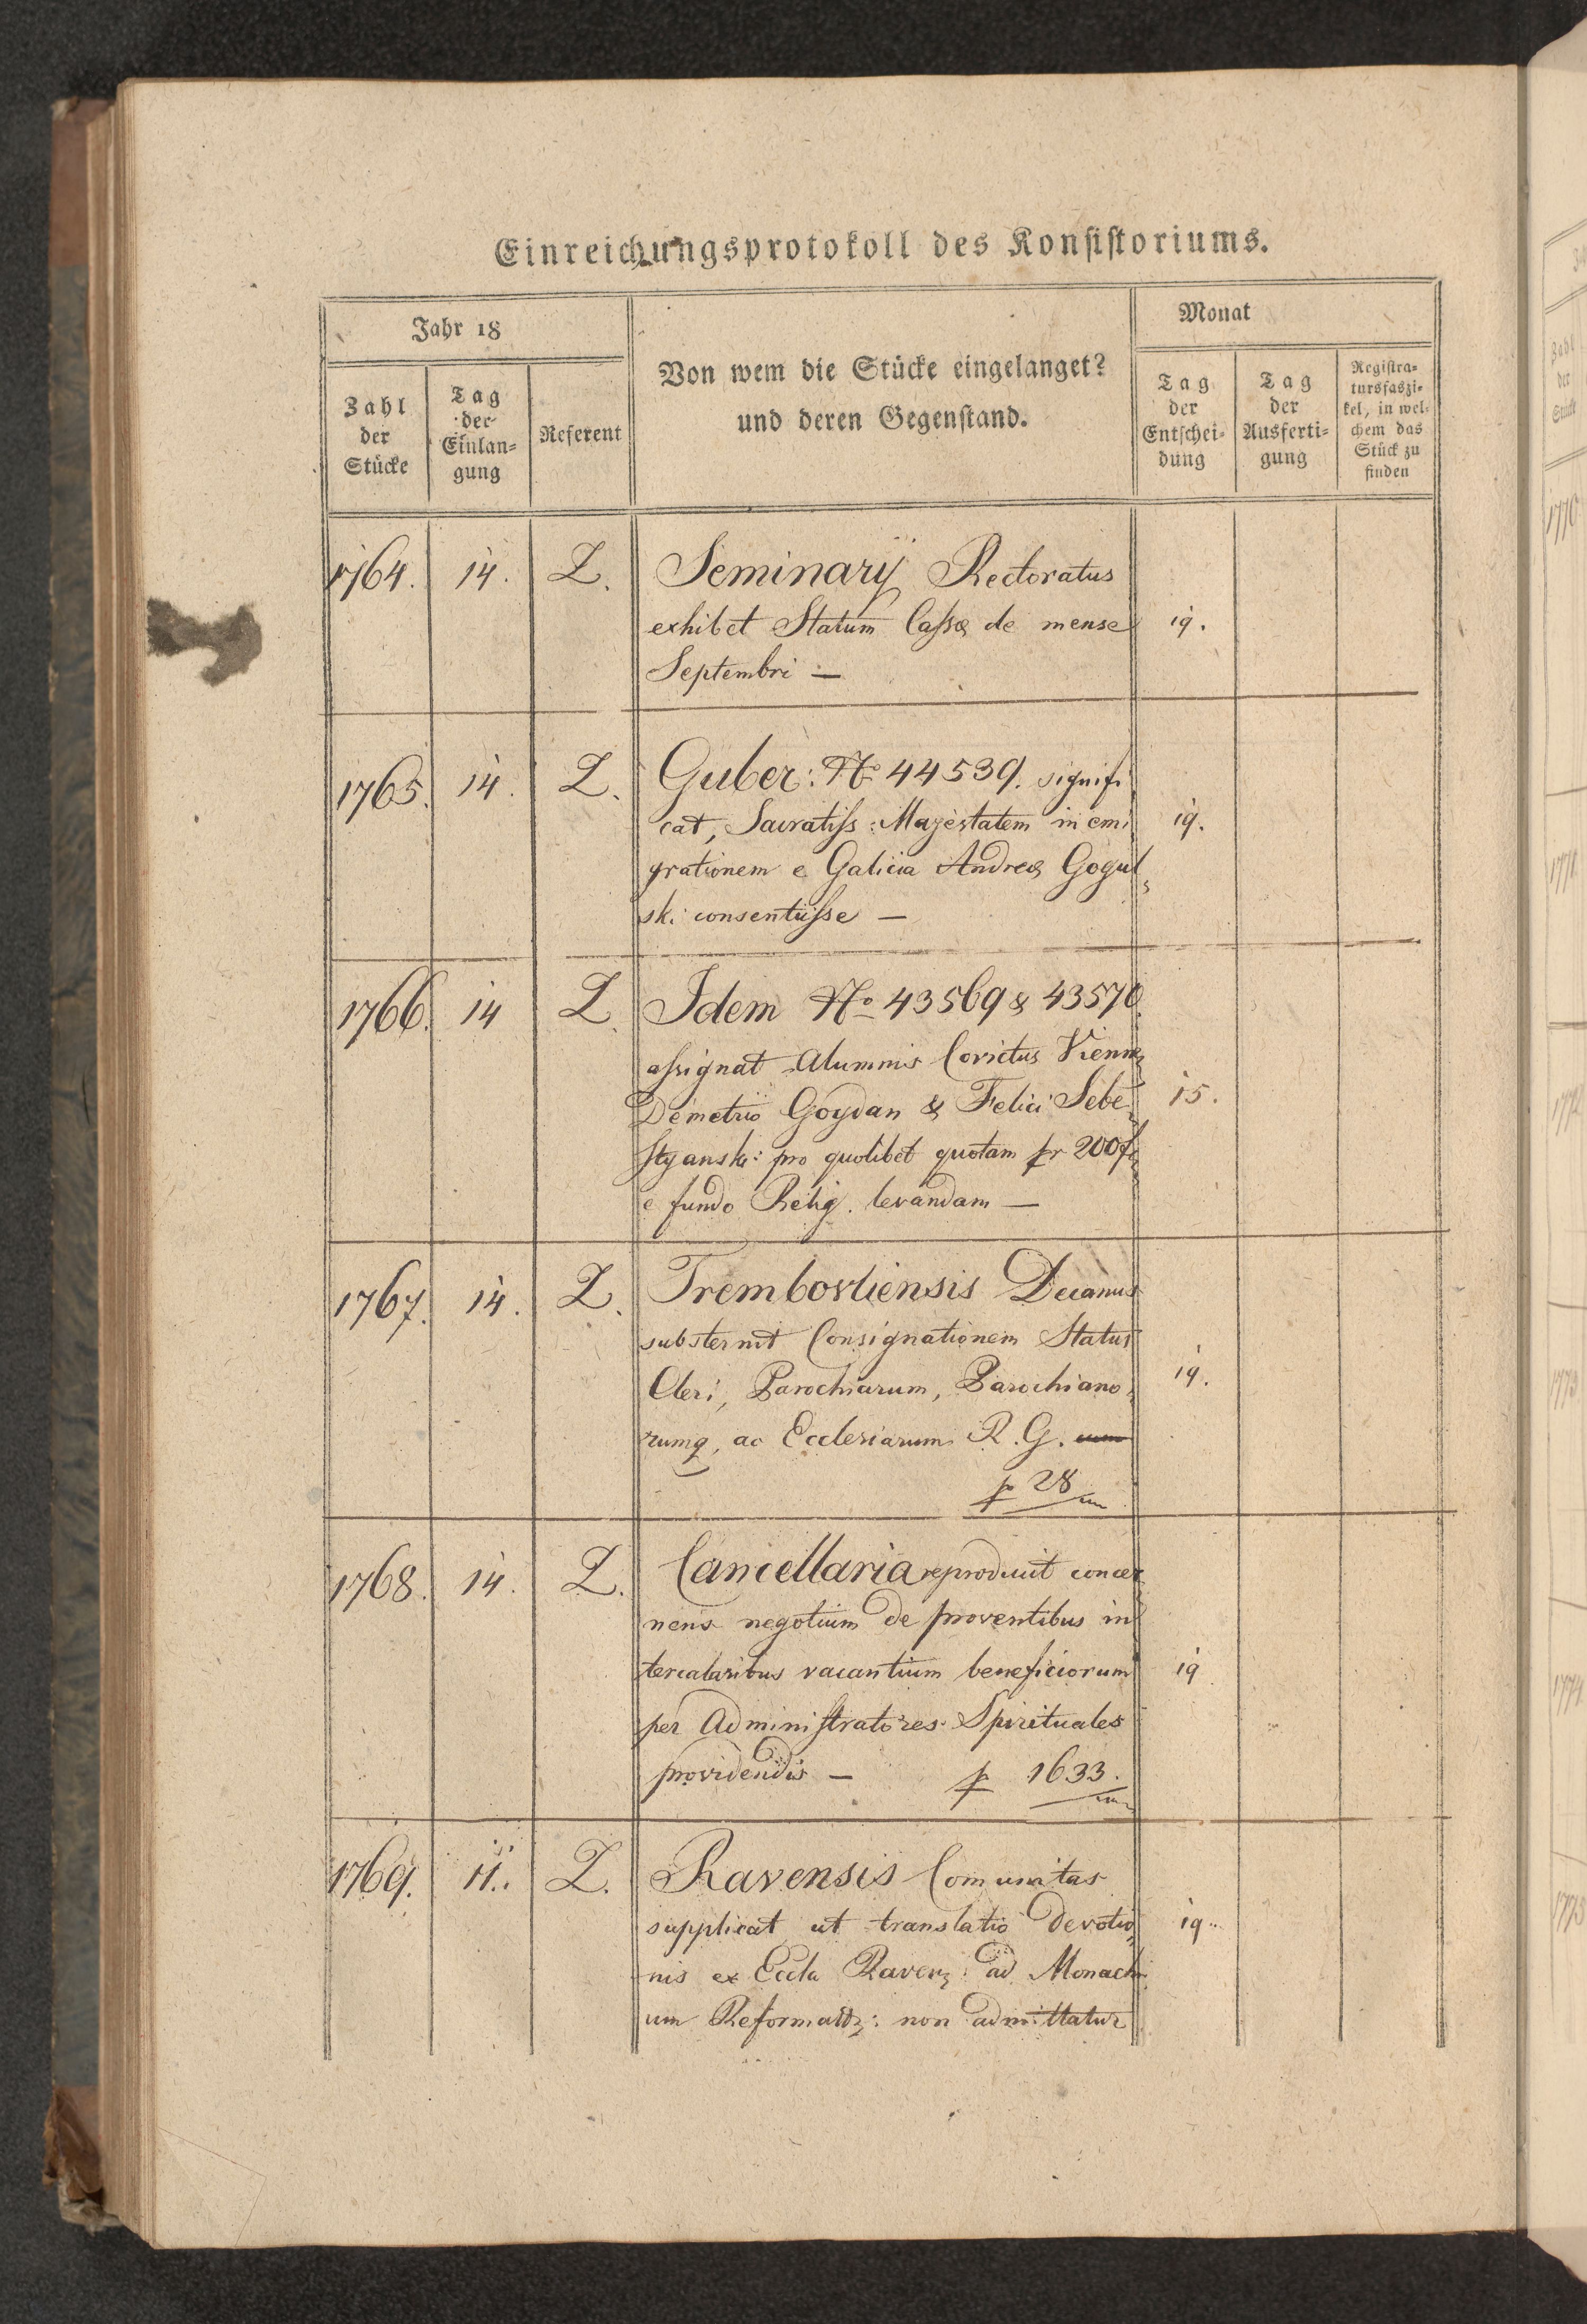 Einreichungsprotokoll des Konsistoriums.
Jahr 18
Monat
Zahl der Stücke
Tag der Einlangung
Referent
Von wem die Stücke eingelanget?
und deren Gegenstand.
Tag der Entscheidung
Tag der Ausfertigung
Registratursfaszikel, in welchem das Stück zu finden
1764. 14. L. Seminarÿ Rectoratus
exhibet Statum Cassæ de mense 19.
Septembri —
1765. 14. L. Guber: No 44539. signifi
cat, Sacratiss: Majestatem in emi 19.
grationem e Galicia Andreæ Gogul
ski consentiisse —
1766. 14 L. Idem No 43569 & 43570.
assignat Alumnis Covictus Viennæ
Demetrio Goydan & Felici Sebe 15.
styanski: pro quolibet quotam pr 200f
e fundo Relig. levandam —
1767. 14. L. Trembovliensis Decanus
substernit Consignationem Status
Cleri, Parochiarum, Parochiano 19.
rumq, ac Ecclesiarum R. G.
p 28
1768. 14. L. Cancellaria reproducit concer
nens negotium de proventibus in
tercalaribus vacantium beneficiorum 19
per Administratores Spirituales
providendis — p 1633.
1769. 11. L. Ravensis Comunitas
supplicat ut translatio devotio 19.
nis ex Eccla Raven: ad Monach
um Reformatt: non admittatur